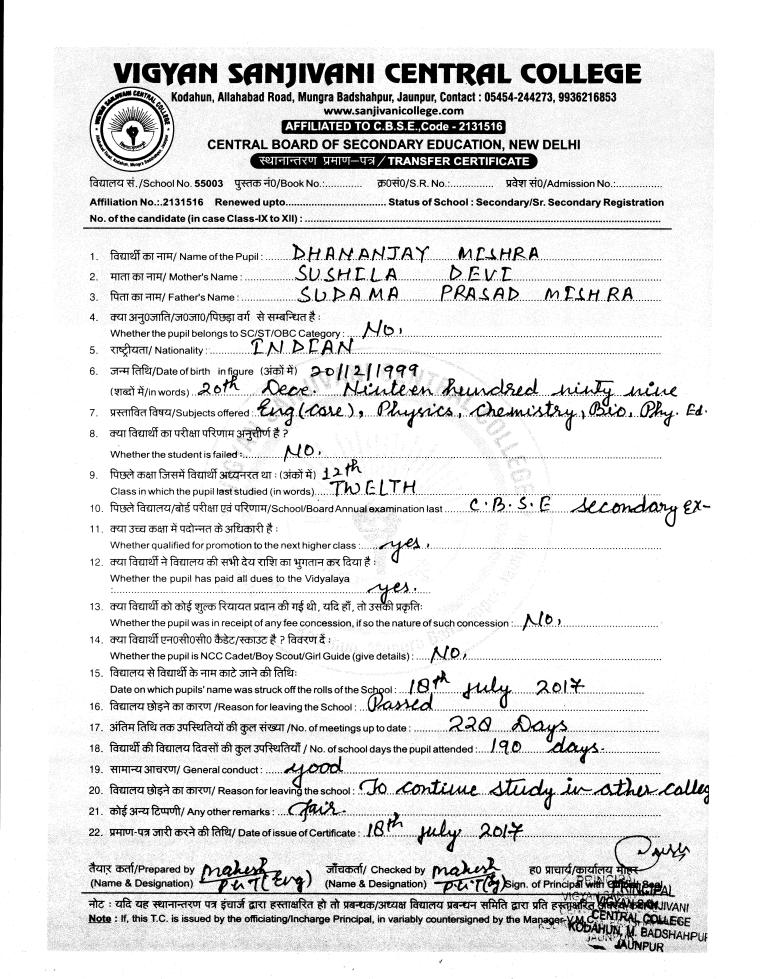 VIGYAN SANJIVANI CENTRAL COLLEGE
Kodahun, Allahabad Road, Mungra Badshahpur, Jaunpur, Contact : 05454-244273, 9936216853
www.sanjivanicollege.com
AFFILIATED TO C.B.S.E.,Code - 2131516
CENTRAL BOARD OF SECONDARY EDUCATION, NEW DELHI
स्थानान्तरण प्रमाण–पत्र / TRANSFER CERTIFICATE
विद्यालय सं./School No. 55003 पुस्तक नं0/Book No.:............ क्र0सं0/S.R. No.:............. प्रवेश सं0/Admission No.:..............
Affiliation No.:.2131516 Renewed upto.............................. Status of School : Secondary/Sr. Secondary Registration
No. of the candidate (in case Class-IX to XII) : ..............................
1. विद्यार्थी का नाम/ Name of the Pupil : DHANANJAY MISHRA
2. माता का नाम/ Mother's Name : SUSHILA DEVI
3. पिता का नाम/ Father's Name : SUDAMA PRASAD MISHRA
4. क्या अनु0जाति/ज0जा0/पिछड़ा वर्ग से सम्बन्धित है :
Whether the pupil belongs to SC/ST/OBC Category : No,
5. राष्ट्रीयता/ Nationality : INDIAN
6. जन्म तिथि/Date of birth in figure (अंकों में) 20/12/1999
(शब्दों में/in words) 20th Dece. Ninteen hundred ninty nine
7. प्रस्तावित विषय/Subjects offered : Eng(Core), Physics, Chemistry, Bio, Phy. Ed.
8. क्या विद्यार्थी का परीक्षा परिणाम अनुत्तीर्ण है ?
Whether the student is failed : NO.
9. पिछले कक्षा जिसमें विद्यार्थी अध्यनरत था : (अंकों में) 12th
Class in which the pupil last studied (in words) TWELTH
10. पिछले विद्यालय/बोर्ड परीक्षा एवं परिणाम/School/Board Annual examination last C.B.S.E secondary EX-
11. क्या उच्च कक्षा में पदोन्नत के अधिकारी है :
Whether qualified for promotion to the next higher class : yes,
12. क्या विद्यार्थी ने विद्यालय की सभी देय राशि का भुगतान कर दिया है :
Whether the pupil has paid all dues to the Vidyalaya
: yes.
13. क्या विद्यार्थी को कोई शुल्क रियायत प्रदान की गई थी, यदि हाँ, तो उसकी प्रकृतिः
Whether the pupil was in receipt of any fee concession, if so the nature of such concession : No,
14. क्या विद्यार्थी एन0सी0सी0 कैडेट/स्काउट है ? विवरण दें :
Whether the pupil is NCC Cadet/Boy Scout/Girl Guide (give details) : NO,
15. विद्यालय से विद्यार्थी के नाम काटे जाने की तिथिः
Date on which pupils' name was struck off the rolls of the School : 18th july 2017
16. विद्यालय छोड़ने का कारण /Reason for leaving the School : Passed
17. अंतिम तिथि तक उपस्थितियों की कुल संख्या /No. of meetings up to date : 220 Days
18. विद्यार्थी की विद्यालय दिवसों की कुल उपस्थितियाँ / No. of school days the pupil attended : 190 days.
19. सामान्य आचरण/ General conduct : good
20. विद्यालय छोड़ने का कारण/ Reason for leaving the school : To continue study in other colleg
21. कोई अन्य टिप्पणी/ Any other remarks : fair.
22. प्रमाण-पत्र जारी करने की तिथि/ Date of issue of Certificate : 18th july 2017
तैयार कर्ता/Prepared by mahesh जाँचकर्ता/ Checked by mahesh ह0 प्राचार्य/कार्यालय मोहर
(Name & Designation) PGT(Eng) (Name & Designation) Sign. of Principal with Official Seal
PRINCIPAL
नोट : यदि यह स्थानान्तरण पत्र इंचार्ज द्वारा हस्ताक्षरित हो तो प्रबन्धक/अध्यक्ष विद्यालय प्रबन्धन समिति द्वारा प्रति हस्ताक्षरित
Note : If, this T.C. is issued by the officiating/Incharge Principal, in variably countersigned by the Manager V.M.C.
CENTRAL COLLEGE
KODAHUN, M. BADSHAHPUR
JAUNPUR